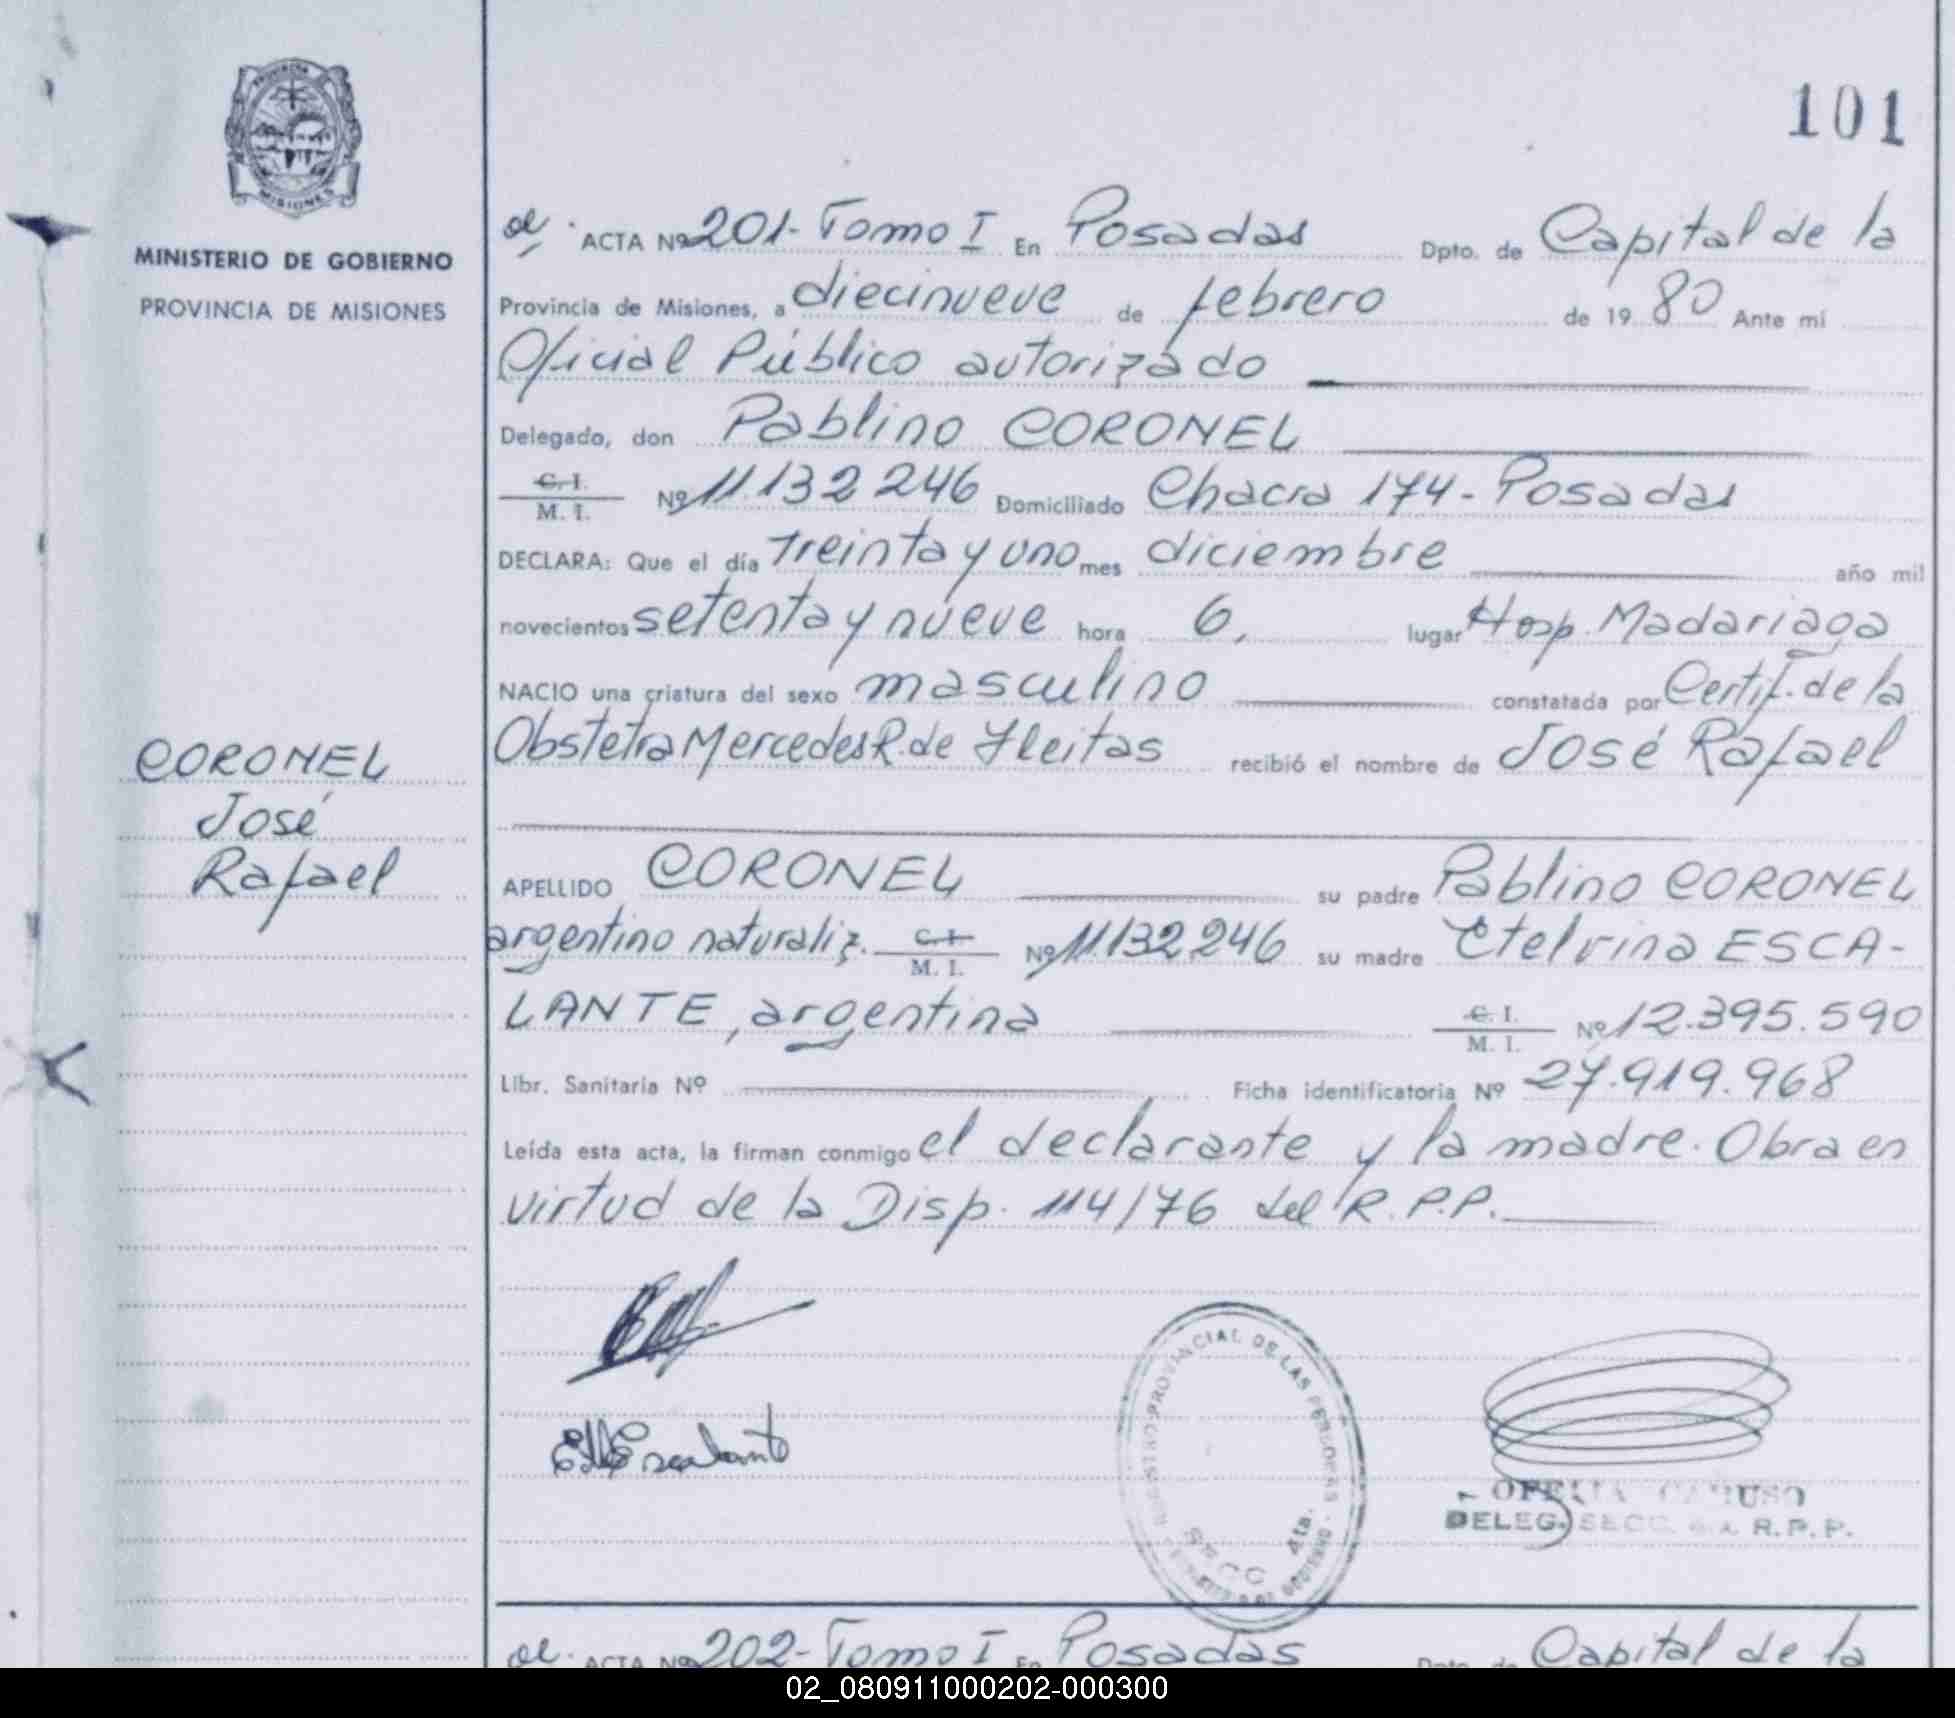 PROVINCIA DE
MISIONES
MINISTERIO DE GOBIERNO
PROVINCIA DE MISIONES
CORONEL
José
Rafael
101
ACTA Nº 201- Tomo I En Posadas Dpto. de Capital de la
Provincia de Misiones, a diecinueve de febrero de 19 80 Ante mi
Oficial Público autorizado
Delegado, don Pablino CORONEL
C. I.
M. I. Nº 11.132 246 Domiciliado Chacra 174 - Posadas
DECLARA: Que el día treinta y uno mes diciembre año mil
novecientos setenta y nueve hora 6, lugar Hosp. Madariaga
NACIO una criatura del sexo masculino constatada por Certif. de la
Obstetra Mercedes R. de Fleitas recibió el nombre de José Rafael
APELLIDO CORONEL su padre Pablino CORONEL
argentino naturaliz. C. I. M. I. Nº 11.132,246 su madre Etelvina ESCA-
LANTE, argentina C. I. M. I. Nº 12.395.590
Libr. Sanitaria Nº Ficha identificatoria Nº 27.919.968
Leída esta acta, la firman conmigo el declarante y la madre. Obra en
virtud de la Disp. 114/76 del R.P.P.
Escalante
PROVINCIAL DE LAS PERSONAS
SECC 4ta.
DELEG. SECC. R. P. P.
ACTA Nº 202- Tomo I En Posadas Dpto. de Capital de la
02_080911000202-000300